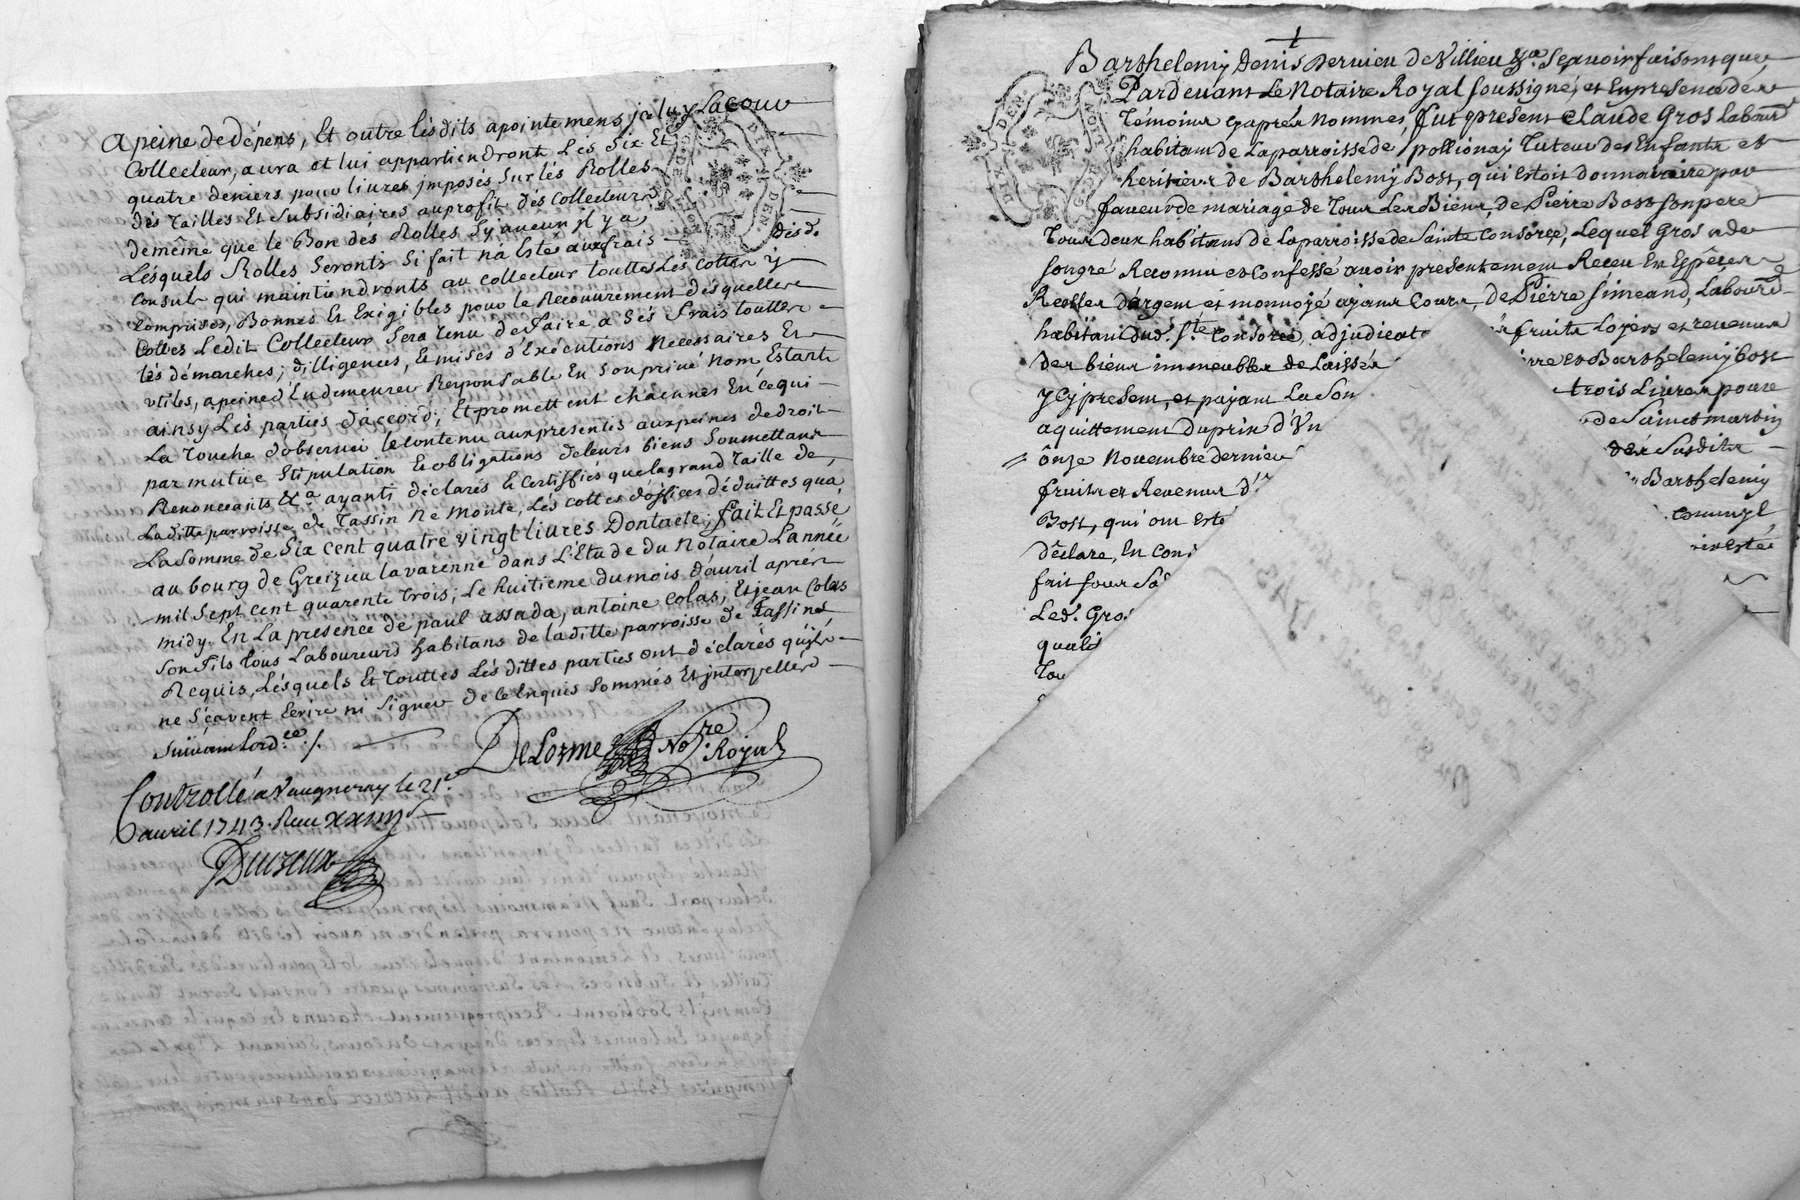 a peine de dépens, Et outre lésdits apointemens jceluy Lacour
Collecteur, aura et lui appartiendronts Lés Six Et
quatre deniers pour livres jmposés Sur lés Rolles
dés Tailles Et Subsidiaires au profit dés Collecteurs
demême que le Bon dés Rolles Sy aucun Il y a,
Lésquels Rolles Seronts Si fait na Estés aux frais désd.
Consuls qui maintiendronts au collecteur touttes Les cottes y
comprises, Bonnes Et Exigibles pour le Recouvrement désquelles
Cottes Ledit Collecteur Sera tenu de faire a Sés frais touttes
lés démarches, dilligences, & mises d'Exécutions Necessaires Et
utiles, a peine d'En demeurer Responsable En Son privé Nom Estants
ainsy Lés parties d'accord, Et promettent chacunes En ce qui
La Touche d'observer le contenu aux presentes aux peines de droit
par mutüe Stipulation & obligations de leurs biens Soumettans
Renoncants &ca ayants déclarés & certiffiés que la grand Taille de
Laditte parroisse de Tassin Ne Monte, Lés cottes d'offices déduittes qua
La Somme de Six cent quatre vingt livres Dont acte, fait Et passé
au bourg de Greizieu lavarenne dans L'Etude du Notaire L'année
mil Sept cent quarente trois, Le huitieme du mois d'avril après
midy. En La presence de paul assada, antoine Colas, Et jean Colas
Son fils tous Laboureurs habitans de laditte parroisse de Tassin
Requis, Lésquels Et Touttes Lés dittes parties ont déclarés qu'ils
ne Sçavent Ecrire ni Signer de ce Enquis Sommés Et jnterpellés
Suivant lord.ce ./.
DeLorme No.re Royal
Controllé a Vaugneray le 21.e
avril 1743. Reçu
Barthelemy Denis Dervieu de Villieu &ca Sçavoir faisons que
Pardevant Le Notaire Royal soussigné, et En presence des
Témoins cy aprés Nommes, fut present Claude Gros Labour.
habitant de La parroisse de pollionay Tuteur des Enfants et
heritiers de Barthelemy Bost, qui Estoit donnataire par
faveur de mariage de Tous Les Biens, de Pierre Bost son pere
Tous deux habitans de La parroisse de Sainte Consorce, Lequel Gros a de
son gré Reconnu et Confessé avoir presentement Receu En Espèces
Reelles d'argent et monnoyé ayant Cours, de Pierre Simeand, Labour.
habitant dud. S.te Consorce, adjudicat fruits Loyers et revenus
des biens immeubles de Laissés rre et Barthelemy bost
y Cy present, et payant La Som trois Livres pour
aquittement Du prix d'Un de Sainct martin
ônze Novembre dernier dés Susdits
fruits et Revenus d' Barthelemy
Bost, qui ont Esté
déclare, En Con
fait sous Sa
Led. Gros
quali
Tou